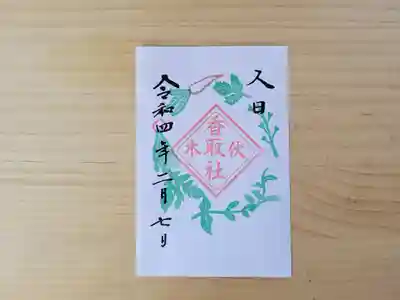 人日
伏木
香取社
令和四年二月七日